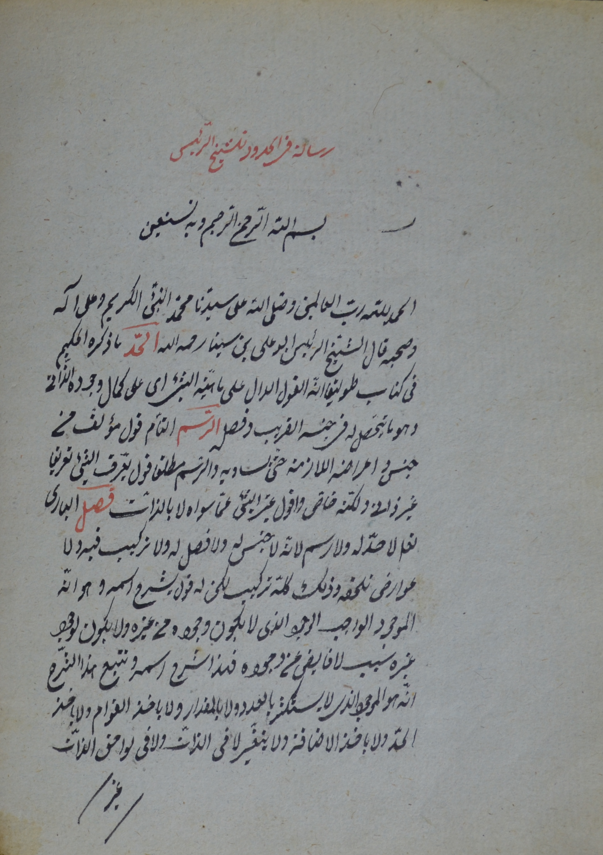 رسالة في الحدود للشيخ الرئيس
بسم الله الرحمن الرحيم وبه نستعين
الحمد لله رب العالمين وصلى الله على سيدنا محمد النبي الكريم وعلى آله
وصحبه قال الشيخ الرئيس ابو علي بن سينا رحمه الله الحد ما ذكره الحكيم
في كتاب طوبيقا انه القول الدال على ماهية الشيء اى على كمال وجوده الذاتي
وهو ما يتحصل له في جنسه القريب وفصله الرسم التام قول مؤلف من
جنس واعراضه اللازمة حتى يساويه والرسم مطلقا قول يعرف الشيء تعريفا
غير ذاتي ولكنه خاص واقول مميز للشيء عما سواه لا بالذات فصل البارى
تعالى لا حد له ولا رسم لانه لا جنس له ولا فصل له ولا تركيب فيه ولا
عوارض تلحقه وذلك كله تركيب لكن له قول يشرح اسمه وهو انه
الموجود الواجب الوجود الذى لا يكون وجوده من غيره ولا يكون لوجود
غيره سبب لا فايض عن وجوده فهذا شرح اسمه ونتبع هذا الشرح
انه هو الموجود الذى لا يتكثر بالعدد ولا بالمقدار ولا باجزاء القوام ولا باجزاء
الحد ولا باجزاء الاضافة ولا يتغير لا في الذات ولا في لواحق الذات
غير